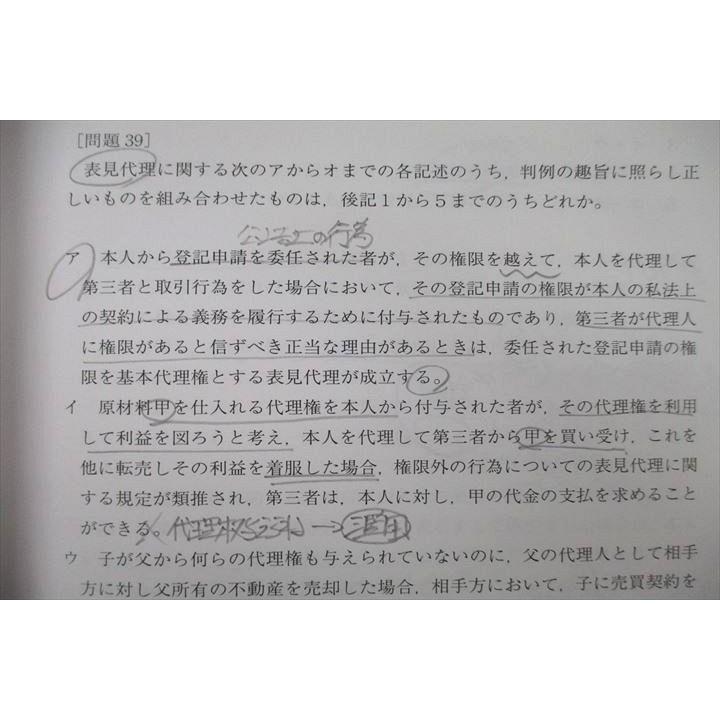 [問題39]
表見代理に関する次のアからオまでの各記述のうち，判例の趣旨に照らし正
しいものを組み合わせたものは，後記1から5までのうちどれか。
の行為
ア 本人から登記申請を委任された者が，その権限を越えて，本人を代理して
第三者と取引行為をした場合において，その登記申請の権限が本人の私法上
の契約による義務を履行するために付与されたものであり，第三者が代理人
に権限があると信ずべき正当な理由があるときは，委任された登記申請の権
限を基本代理権とする表見代理が成立する。
イ 原材料甲を仕入れる代理権を本人から付与された者が，その代理権を利用
して利益を図ろうと考え，本人を代理して第三者から甲を買い受け，これを
他に転売しその利益を着服した場合，権限外の行為についての表見代理に関
する規定が類推され，第三者は，本人に対し，甲の代金の支払を求めること
ができる。 代理権 → 濫用
ウ 子が父から何らの代理権も与えられていないのに，父の代理人として相手
方に対し父所有の不動産を売却した場合，相手方において，子に売買契約を